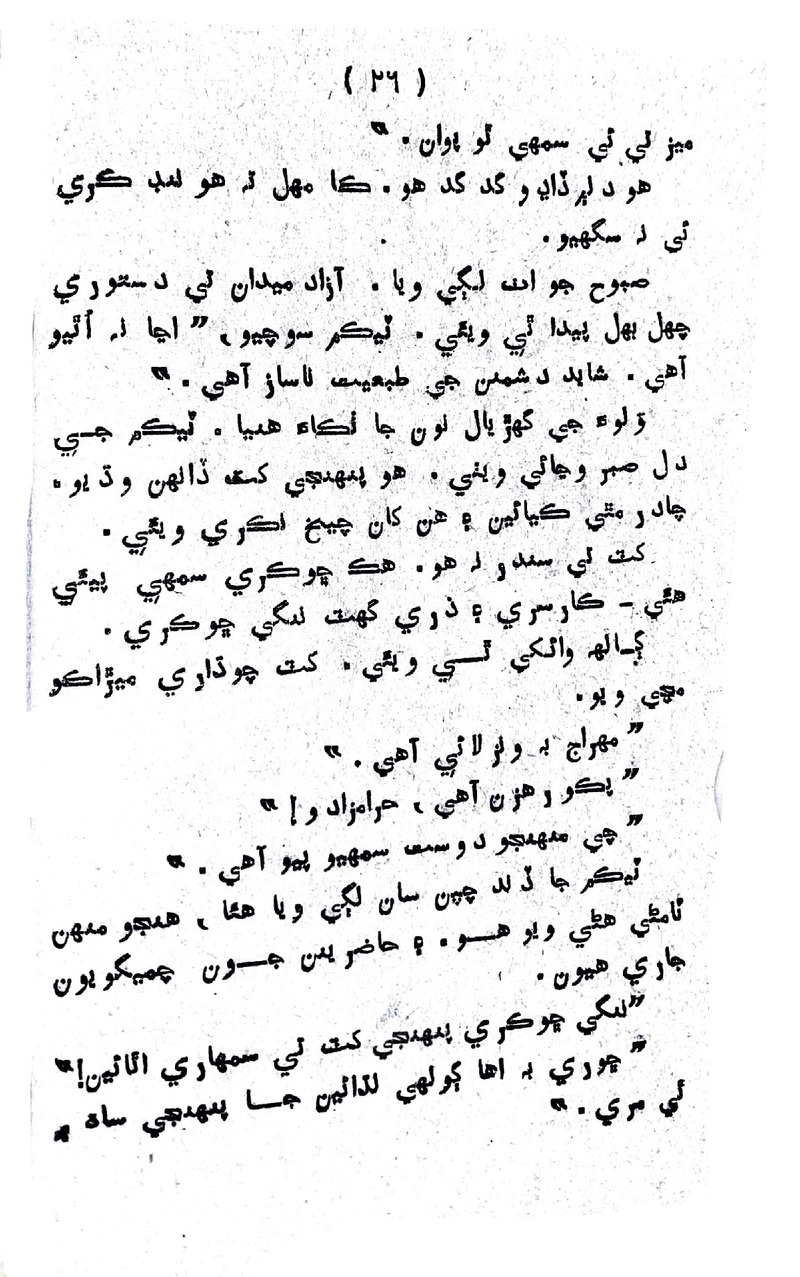 ( ٢٦ )
ميز تي ئي سمهي ٿو پوان . "
هو دلبرداڊو گد گد هو . ڪا مهل ته هو ننڊ ڪري
ئي نه سگهيو .
صبوح جو اٺ لڳي ويا . آزاد ميدان تي دستوري
چهل بهل پيدا ٿي ويئي . ٽيڪم سوچيو ، " اڃا نه اُٿيو
آهي . شايد دشمنن جي طبعيت ناساز آهي . "
ڦلوءَ جي گهڙيال نون جا ٺڪاءَ هنيا . ٽيڪم جي
دل صبر وڃائي ويٺي . هو پنهنجي کٽ ڏانهن وڌيو .
چادر مٿي ڪيائين ۽ هن کان چيخ نڪري ويئي .
کٽ تي سندر نه هو . هڪ ڇوڪري سمهي پيئي
هئي – ڪارسري ۽ ذري گهٽ ننگي ڇوڪري .
ڳالهه وائکي ٿي ويئي . کٽ چوڌاري ميڙاڪو
مچي ويو .
" مهراج به ولر لائي آهي . "
" پڪو رهزن آهي ، حرامزادو ! "
" چي منهنجو دوست سمهيو پيو آهي . "
ٽيڪم جا ڏند چپن سان لڳي ويا هئا ، هنجو منهن
ٽامڻي هڻي ويو هو . ۽ حاضرين جون چميگويون
جاري هيون .
" ننگي ڇوڪري پنهنجي کٽ تي سمهاري اٿائين ! "
" ڇوري به اها ڳولهي لڌائين جا پنهنجي ساھ ۾
ئي مري . "